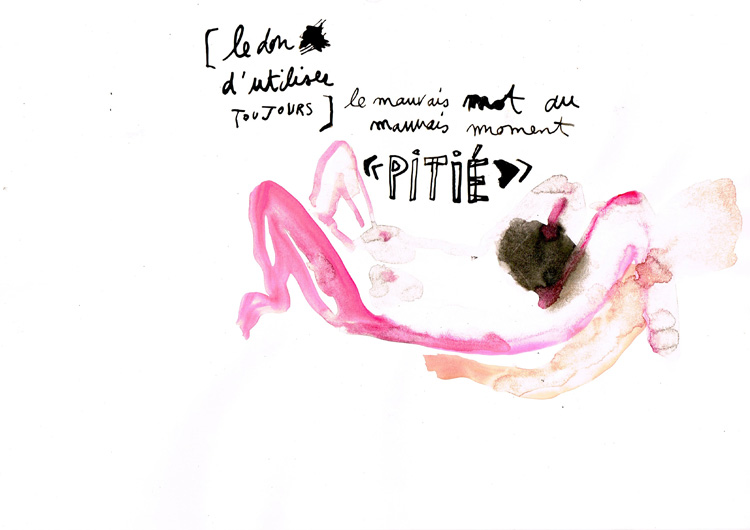 [ le don
d'utiliser
TOUJOURS ]
le mauvais mot au
mauvais moment
« PITIÉ »